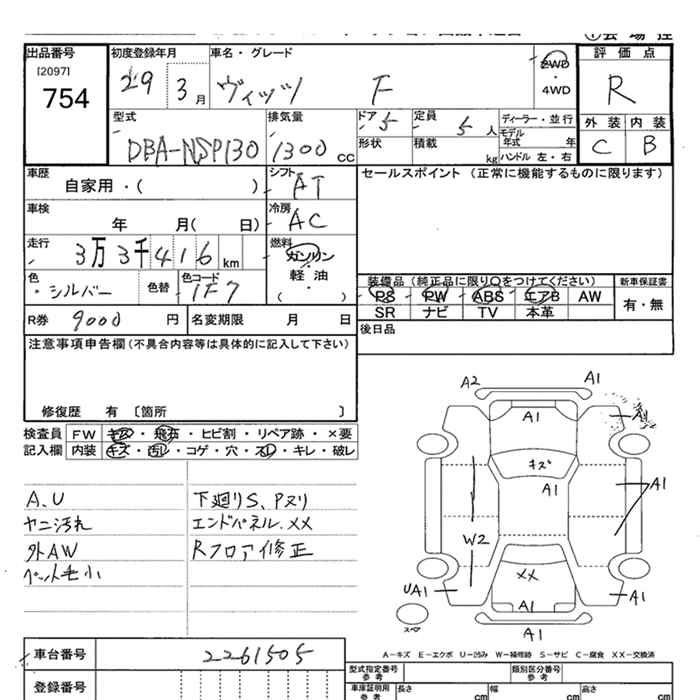 出品番号
[2097]
754
初度登録年月
29 3 月
車名・グレード
ヴィッツ F
2WD
・
4WD
評価点
R
外装 内装
C B
型式
DBA-NSP130
排気量
1300 cc
ドア 5
定員 5 人
形状
積載 kg
ディーラー・並行
モデル年式 年
ハンドル 左・右
車歴
自家用・( )
シフト AT
セールスポイント (正常に機能するものに限ります)
車検
年 月( 日)
冷房 AC
走行
3万3千416 km
燃料
ガソリン
軽・油
・
( )
色
・シルバー
色替
色コード
1F7
装備品 (純正品に限り○をつけてください)
PS PW ABS エアB AW
SR ナビ TV 本革
新車保証書
有・無
R券 9000 円
名変期限 月 日
後日品
注意事項申告欄 (不具合内容等は具体的に記入して下さい)
修復歴 有 〔箇所 〕
検査員 FW キズ・飛石・ヒビ割・リペア跡・×要
記入欄 内装 キズ・汚レ・コゲ・穴・スレ・キレ・破レ
A.U
ヤニ汚れ
外AW
ペット毛小
下廻りS、Pヌリ
エンドパネル、XX
Rフロア修正
A2 A1
A1 A1
キズ
A1 A1
W2
XX
UA1 A1 A1
A1
スペア
A-キズ E-エクボ U-凹み W-補修跡 S-サビ C-腐食 XX-交換済
車台番号 2261505
登録番号
型式指定番号
参考
類別区分番号
参考
車庫証明用
参考
長さ cm
幅 cm
高さ cm